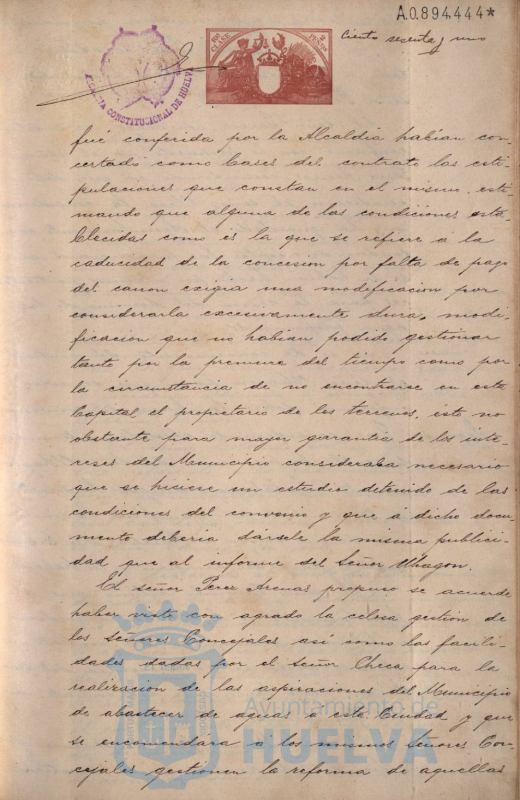 A.0.894.444*
Ciento sesenta y uno
10ª CLASE
ALCALDIA CONSTITUCIONAL DE HUELVA
fué conferida por la Alcaldia habian con-
certado como bases del contrato las esti-
pulaciones que constan en el mismo, esti-
mando que alguna de las condiciones esta-
blecidas como es la que se refiere á la
caducidad de la concesion por falta de pago
del canon exigia una modificacion por
considerarla excesivamente dura, modi-
ficacion que no habian podido gestionar
tanto por la premura del tiempo como por
la circunstancia de no encontrarse en esta
Capital el propietario de los terrenos, esto no
obstante para mayor garantia de los inte-
reses del Municipio consideraba necesario
que se hiciese un estudio detenido de las
condiciones del convenio y que á dicho docu-
mento deberia darsele la misma publici-
dad que al informe del Señor Uhagon.
El señor Perez Arenas propuso se acuerde
haber visto con agrado la celosa gestion de
los señores Concejales así como las facili-
dades dadas por el señor Checa para la
realizacion de las aspiraciones del Municipio
de abastecer de aguas á esta Ciudad y que
se encomendara á los mismos señores Con-
cejales gestionen la reforma de aquellas
Ayuntamiento de
HUELVA